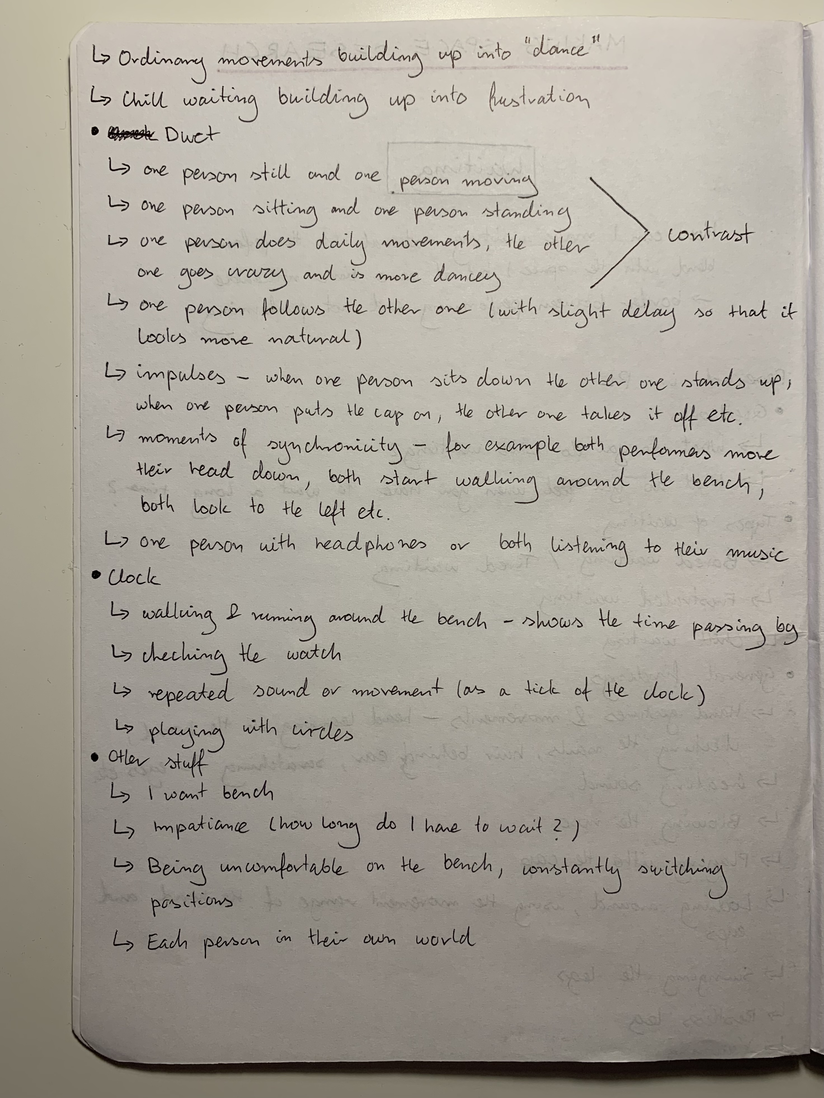 ↳ Ordinary movements building up into "dance"
↳ Chill waiting building up into frustration
• Duet
↳ one person still and one person moving
↳ one person sitting and one person standing
↳ one person does daily movements, the other
one goes crazy and is more dancey
contrast
↳ one person follows the other one (with slight delay so that it
looks more natural)
↳ impulses – when one person sits down the other one stands up,
when one person puts the cap on, the other one takes it off etc.
↳ moments of synchronicity – for example both performers move
their head down, both start walking around the bench,
both look to the left etc.
↳ one person with headphones or both listening to their music
• Clock
↳ walking & running around the bench – shows the time passing by
↳ checking the watch
↳ repeated sound or movement (as a tick of the clock)
↳ playing with circles
• Other stuff
↳ I want bench
↳ Impatiance (how long do I have to wait?)
↳ Being uncomfortable on the bench, constantly switching
positions
↳ Each person in their own world